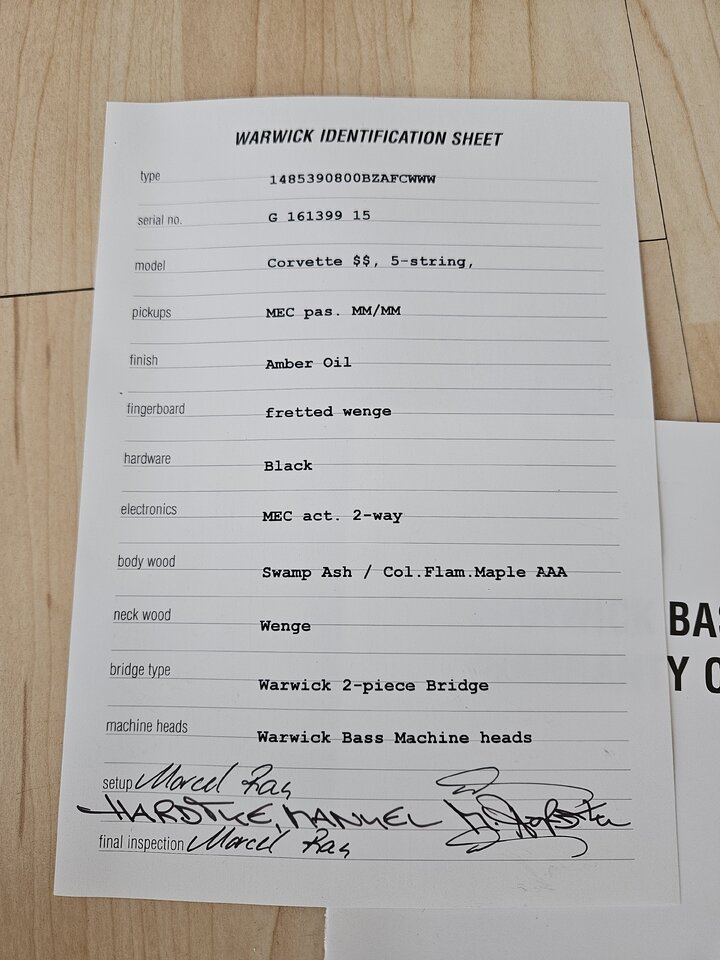 WARWICK IDENTIFICATION SHEET
type 1485390800BZAFCWWW
serial no. G 161399 15
model Corvette $$, 5-string,
pickups MEC pas. MM/MM
finish Amber Oil
fingerboard fretted wenge
hardware Black
electronics MEC act. 2-way
body wood Swamp Ash / Col.Flam.Maple AAA
neck wood Wenge
bridge type Warwick 2-piece Bridge
machine heads Warwick Bass Machine heads
setup Marcel
HARDTKE, MANUEL
final inspection Marcel
BAS
Y C